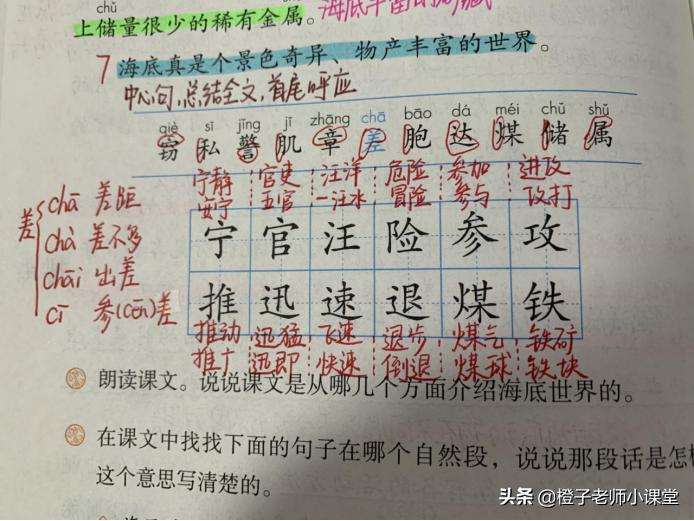 chǔ
上储量很少的稀有金属。
7 海底真是个景色奇异、物产丰富的世界。
中心句,总结全文,首尾呼应
qiè sī jǐng jī zhāng chā bāo dá méi chǔ shǔ
窃 私 警 肌 章 差 胞 达 煤 储 属
宁静 官吏 汪洋 危险 参加 进攻
安宁 五官 一汪水 冒险 参与 攻打
宁 官 汪 险 参 攻
推 迅 速 退 煤 铁
推动 迅猛 飞速 退步 煤气 铁矿
推广 迅即 快速 倒退 煤球 铁块
差
chā 差距
chà 差不多
chāi 出差
cī 参(cēn)差
朗读课文。说说课文是从哪几个方面介绍海底世界的。
在课文中找找下面的句子在哪个自然段,说说那段话是怎
这个意思写清楚的。
头条 @橙子老师小课堂